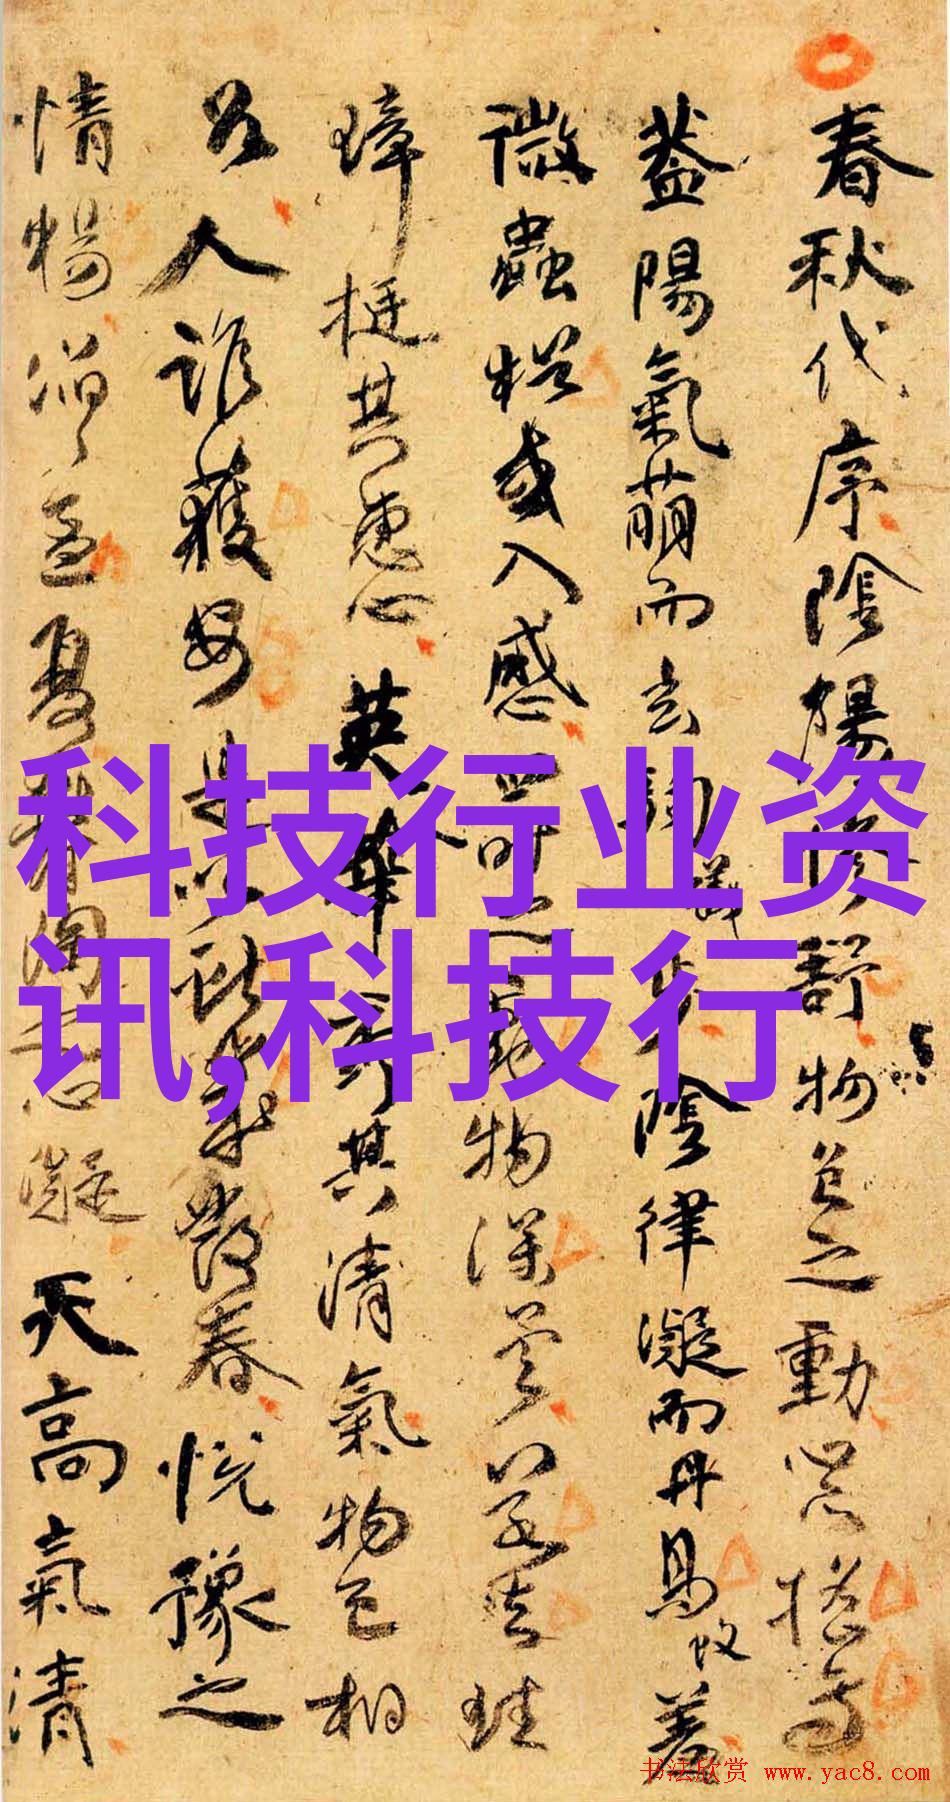 春秋代序陰陽慘舒物色之動心亦搖焉
蓋陽氣萌而玄駒步陰律凝而丹鳥羞
微蟲猶或入感四時之動物深矣若夫珪
璋挺其惠心英華秀其清氣物色相
召人誰獲安是以獻歲發春悅豫之
情暢滔滔孟夏鬱陶之心凝天高氣清
科技行业资
讯,科技行
书法欣赏 www.yac8.com